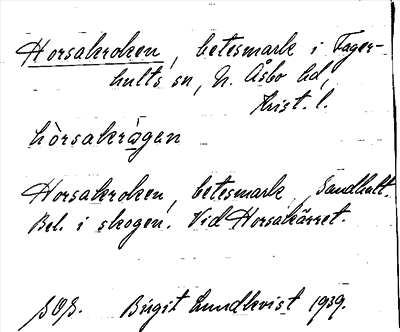 Horsakroken, betesmark i Fager-
hults sn, N. Åsbo hd,
Krist. l.
hòrsakrågen
Horsakroken, betesmark, Sandhult.
Bel. i skogen. Vid Horsakärret.
Birgit Lundkvist 1939.